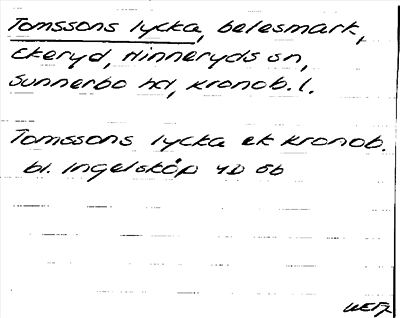 Tomssons lycka, belesmark,
Ekeryd, Hinneryds sn,
Sunnerbo hd, kronob. l.
Tomssons lycka ek kronob.
bl. Ingelsköp 4D 5b